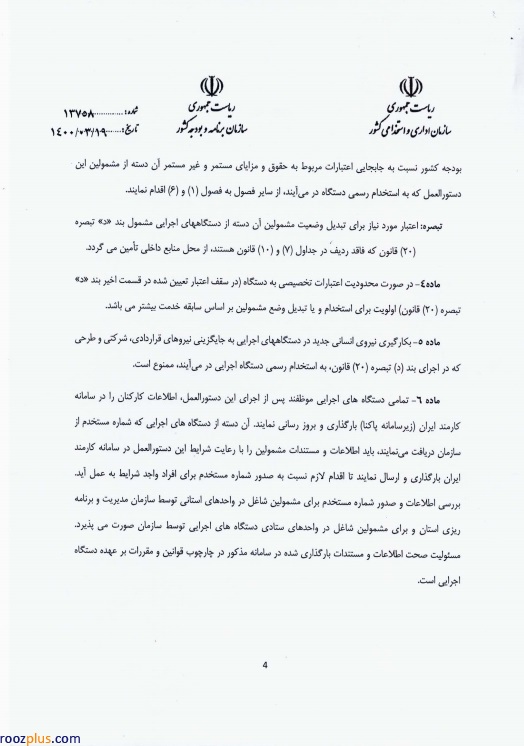 ریاست جمهوری
سازمان اداری و استخدامی کشور
ریاست جمهوری
سازمان برنامه و بودجه کشور
شماره: ۱۳۷۵۸
تاریخ: ۱۴۰۰/۰۳/۱۹
بودجه کشور نسبت به جابجایی اعتبارات مربوط به حقوق و مزایای مستمر و غیر مستمر آن دسته از مشمولین این
دستورالعمل که به استخدام رسمی دستگاه در می‌آیند، از سایر فصول به فصول (۱) و (۶) اقدام نمایند.
تبصره: اعتبار مورد نیاز برای تبدیل وضعیت مشمولین آن دسته از دستگاههای اجرایی مشمول بند «د» تبصره
(۲۰) قانون که فاقد ردیف در جداول (۷) و (۱۰) قانون هستند، از محل منابع داخلی تأمین می گردد.
ماده۴- در صورت محدودیت اعتبارات تخصیصی به دستگاه (در سقف اعتبار تعیین شده در قسمت اخیر بند «د»
تبصره (۲۰) قانون) اولویت برای استخدام و یا تبدیل وضع مشمولین بر اساس سابقه خدمت بیشتر می باشد.
ماده ۵- بکارگیری نیروی انسانی جدید در دستگاههای اجرایی به جایگزینی نیروهای قراردادی، شرکتی و طرحی
که در اجرای بند (د) تبصره (۲۰) قانون، به استخدام رسمی دستگاه اجرایی در می‌آیند، ممنوع است.
ماده ۶- تمامی دستگاه های اجرایی موظفند پس از اجرای این دستورالعمل، اطلاعات کارکنان را در سامانه
کارمند ایران (زیرسامانه پاکنا) بارگذاری و بروز رسانی نمایند. آن دسته از دستگاه های اجرایی که شماره مستخدم از
سازمان دریافت می‌نمایند، باید اطلاعات و مستندات مشمولین را با رعایت شرایط این دستورالعمل در سامانه کارمند
ایران بارگذاری و ارسال نمایند تا اقدام لازم نسبت به صدور شماره مستخدم برای افراد واجد شرایط به عمل آید.
بررسی اطلاعات و صدور شماره مستخدم برای مشمولین شاغل در واحدهای استانی توسط سازمان مدیریت و برنامه
ریزی استان و برای مشمولین شاغل در واحدهای ستادی دستگاه های اجرایی توسط سازمان صورت می پذیرد.
مسئولیت صحت اطلاعات و مستندات بارگذاری شده در سامانه مذکور در چارچوب قوانین و مقررات بر عهده دستگاه
اجرایی است.
4
roozplus.com